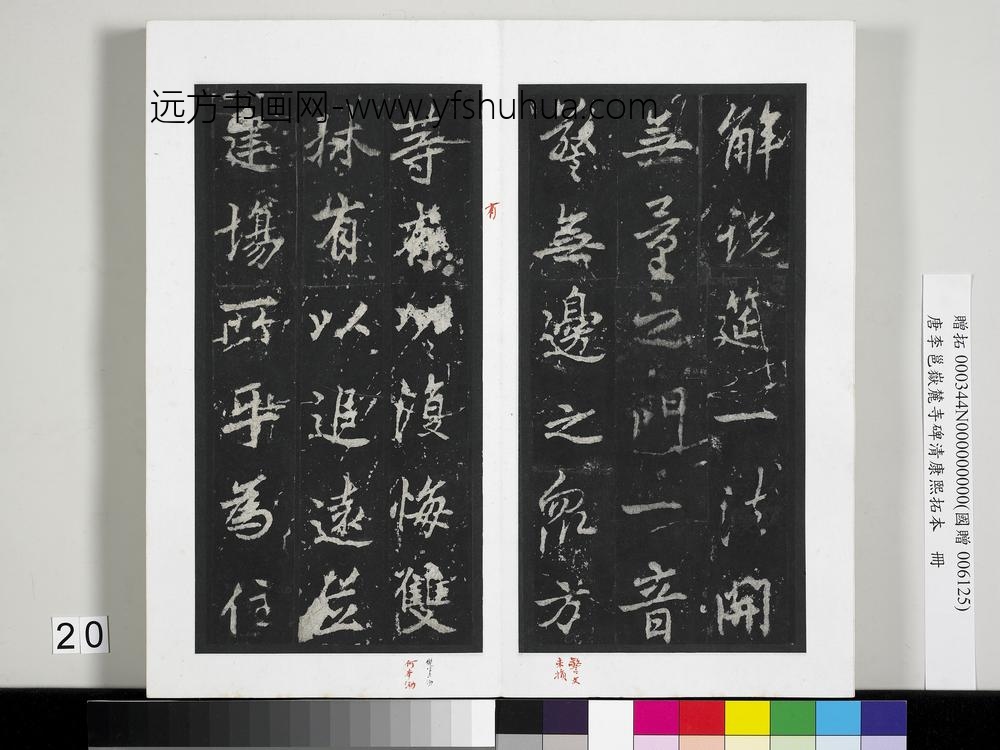 远方书画网-www.yfshuhua.com
解說筵一法開
無量之門一音
警無邊之眾方
等以復悔雙
林有以追遠並
建場所乎為住
有
警字
未損
何本泐
贈拓 000344N000000000(國贈 006125)
唐李邕嶽麓寺碑清康熙拓本 冊
20